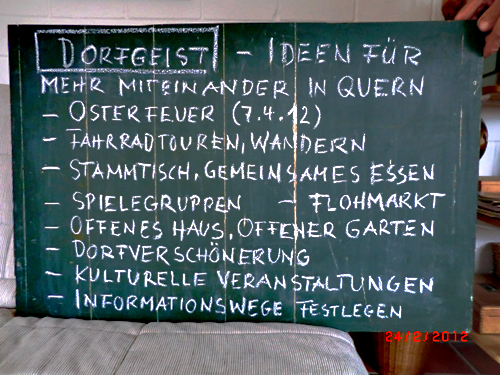 DORFGEIST - IDEEN FÜR
MEHR MITEINANDER IN QUERN
- OSTERFEUER (7.4.12)
- FAHRRADTOUREN, WANDERN
- STAMMTISCH, GEMEINSAMES ESSEN
- SPIELEGRUPPEN - FLOHMARKT
- OFFENES HAUS, OFFENER GARTEN
- DORFVERSCHÖNERUNG
- KULTURELLE VERANSTALTUNGEN
- INFORMATIONSWEGE FESTLEGEN
24/2/2012